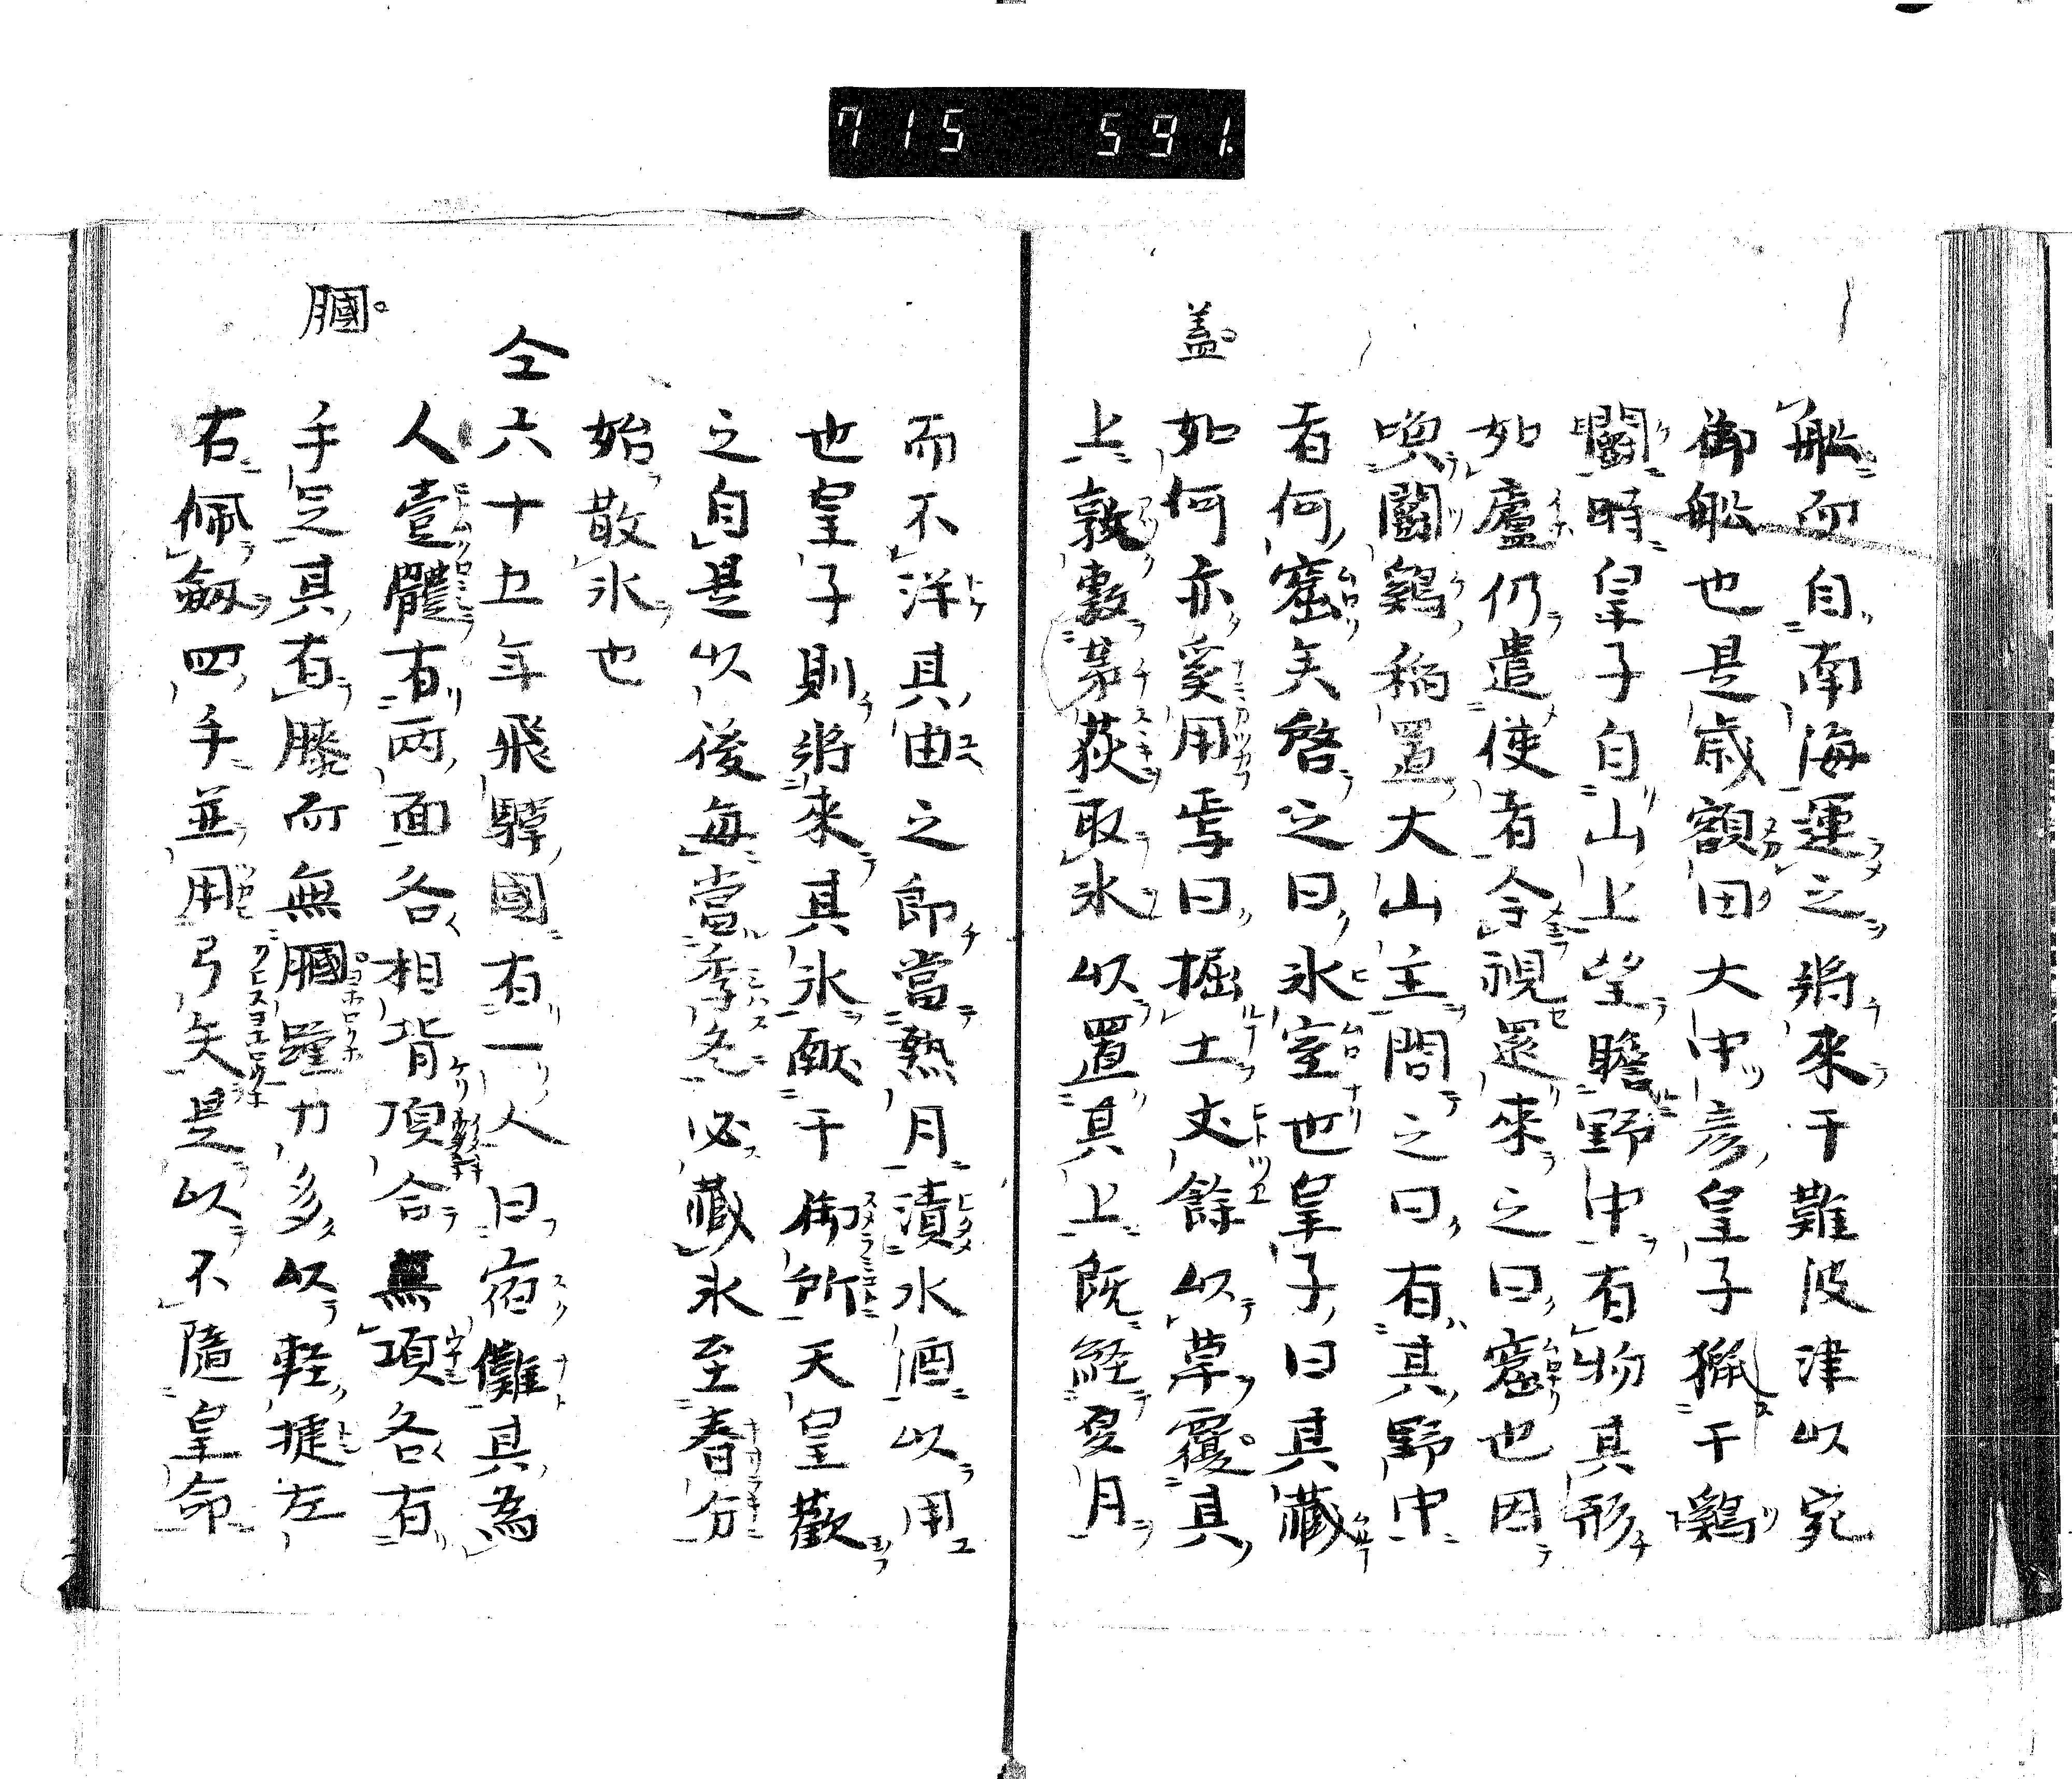 715 591.
舩而自南海運之將來于難波津以宛
御舩也是歳額田大中彦皇子獵于鷄
闘時皇子自山上望瞻野中有物其形
如廬仍遣使者令視還來之曰窟也因
喚闘鷄稲置大山主問之曰有其野中
者何窟矣啓之曰氷室也皇子曰其藏
如何亦奚用焉曰掘土丈餘以草覆其
盖
上敦敷茅荻取氷以置其上既経夏月
而不泮其由之即當熱月漬水酒以用
也皇子則將來其氷献于御所天皇歡
之自是以後毎當季冬必藏氷至春分
始散氷也
仝六十五年飛騨國有一人曰宿儺其為
人壹體有兩面各相背頂合無項各有
膕
手足其有膝而無膕踵力多以軽捷左
右佩剱四手並用弓矢是以不隨皇命